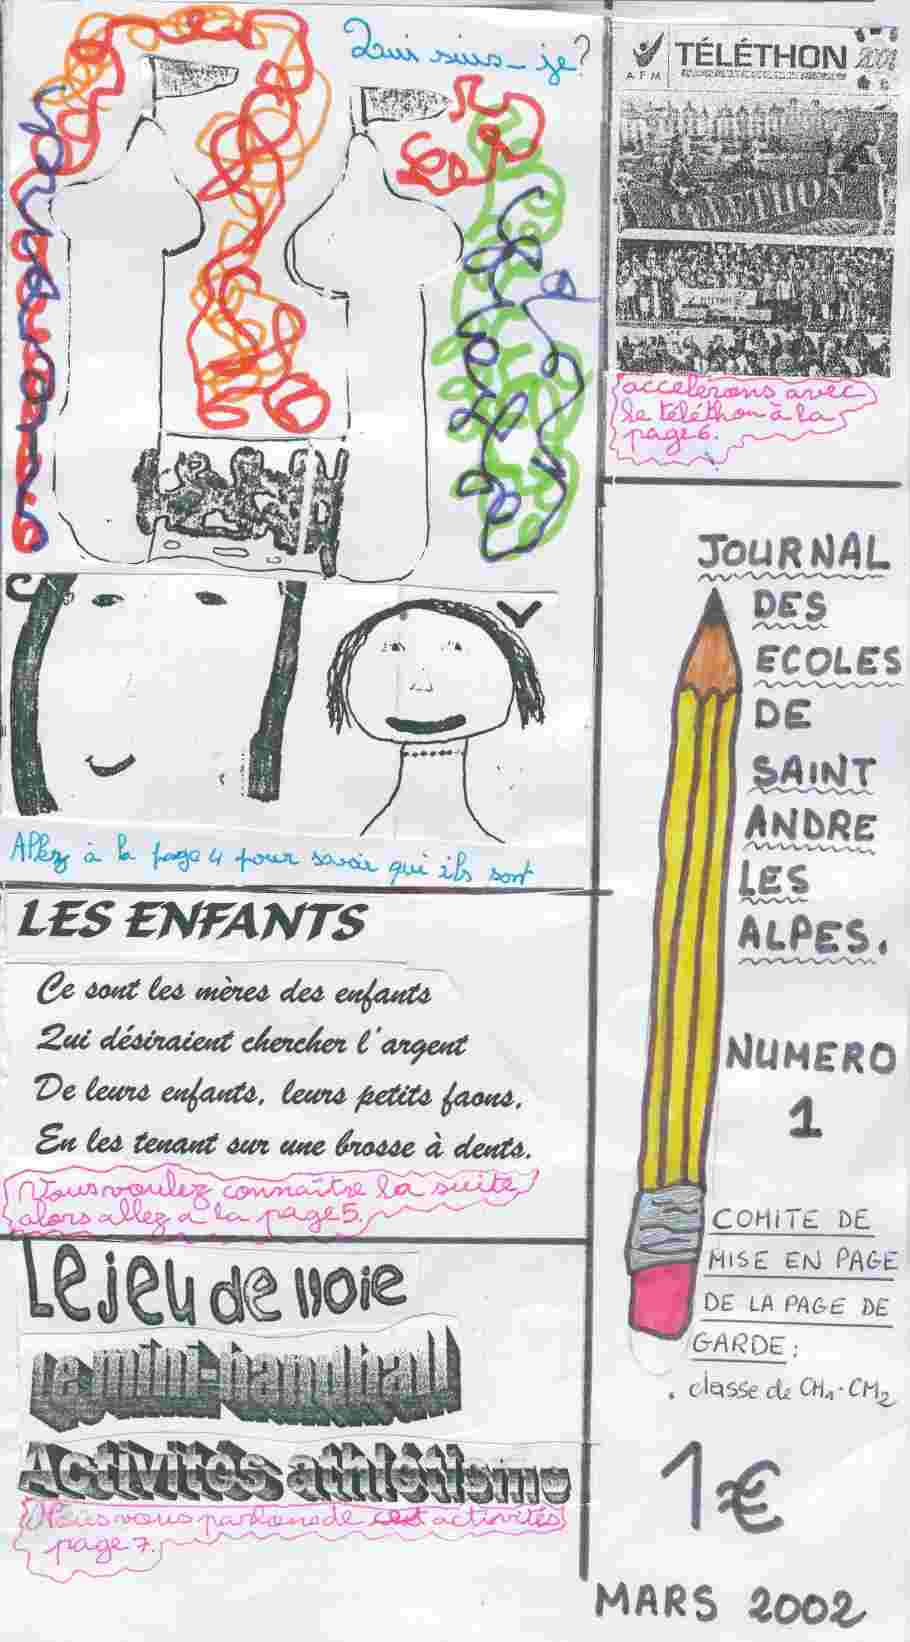 Qui suis-je?
Allez à la page 4 pour savoir qui ils sont
LES ENFANTS
Ce sont les mères des enfants
Qui désiraient chercher l'argent
De leurs enfants, leurs petits faons,
En les tenant sur une brosse à dents.
Vous voulez connaître la suite
alors allez à la page 5.
Le jeu de l'oie
Le mini-handball
Activités athlétisme
Nous vous parlons de cest activités
page 7.
AFM
TÉLÉTHON 2001
TELETHON
accelérons avec
le téléthon à la
page 6.
JOURNAL
DES
ECOLES
DE
SAINT
ANDRE
LES
ALPES.
NUMERO
1
COMITE DE
MISE EN PAGE
DE LA PAGE DE
GARDE:
. classe de CM1-CM2
1€
MARS 2002